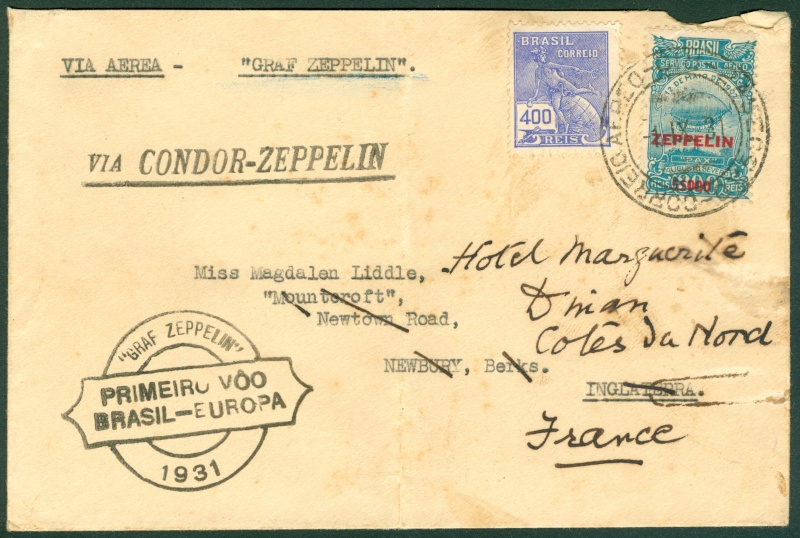 VIA AEREA - "GRAF ZEPPELIN".
BRASIL
CORREIO
400
REIS
BRASIL
SERVIÇO POSTAL AEREO
ZEPPELIN
5$000
REIS
CORREIO AEREO
VIA CONDOR-ZEPPELIN
Miss Magdalen Liddle,
"Mountcroft",
Newtown Road,
NEWBURY, Berks.
INGLATERRA.
Hotel Marguerite
Dinan
Cotes du Nord
France
"GRAF ZEPPELIN"
PRIMEIRO VÔO
BRASIL-EUROPA
1931